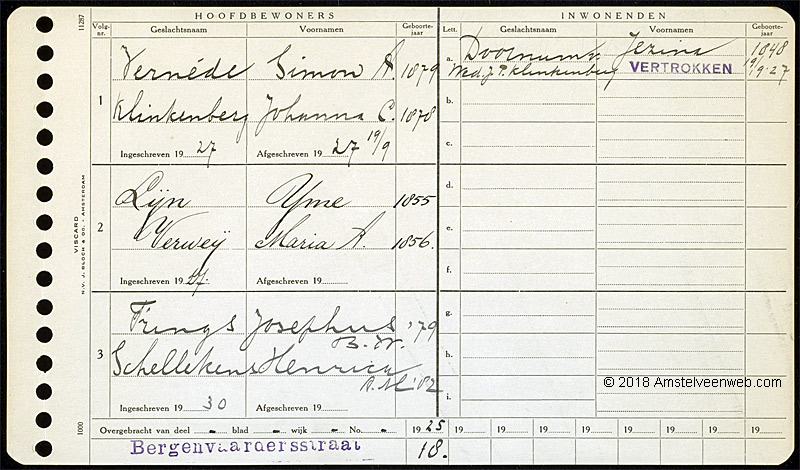 HOOFDBEWONERS
Volg-nr. Geslachtsnaam Voornamen Geboorte-jaar
1
Vernéde Simon A. 1879
Klinkenberg Johanna C. 1878
Ingeschreven 19 27 Afgeschreven 19 27 19/9
2
Lijn Yme 1855
Verweij Maria A. 1856.
Ingeschreven 19 27. Afgeschreven 19
3
Frings Josephus '79
B. W.
Schellekens Henrica
A.M. '82
Ingeschreven 19 30 Afgeschreven 19
INWONENDEN
Lett. Geslachtsnaam Voornamen Geboorte-jaar
a. Doornum v. Jezina 1848
Wed. J. P. Klinkenberg VERTROKKEN 19/9-27
b.
c.
d.
e.
f.
g.
h.
i.
© 2018 Amstelveenweb.com
Overgebracht van deel - blad - wijk - No. - 19 25 19 19 19 19 19 19 19
Bergenvaardersstraat 18.
11287
VISCARD
N.V. J. BLOCH & CO. - AMSTERDAM
1000